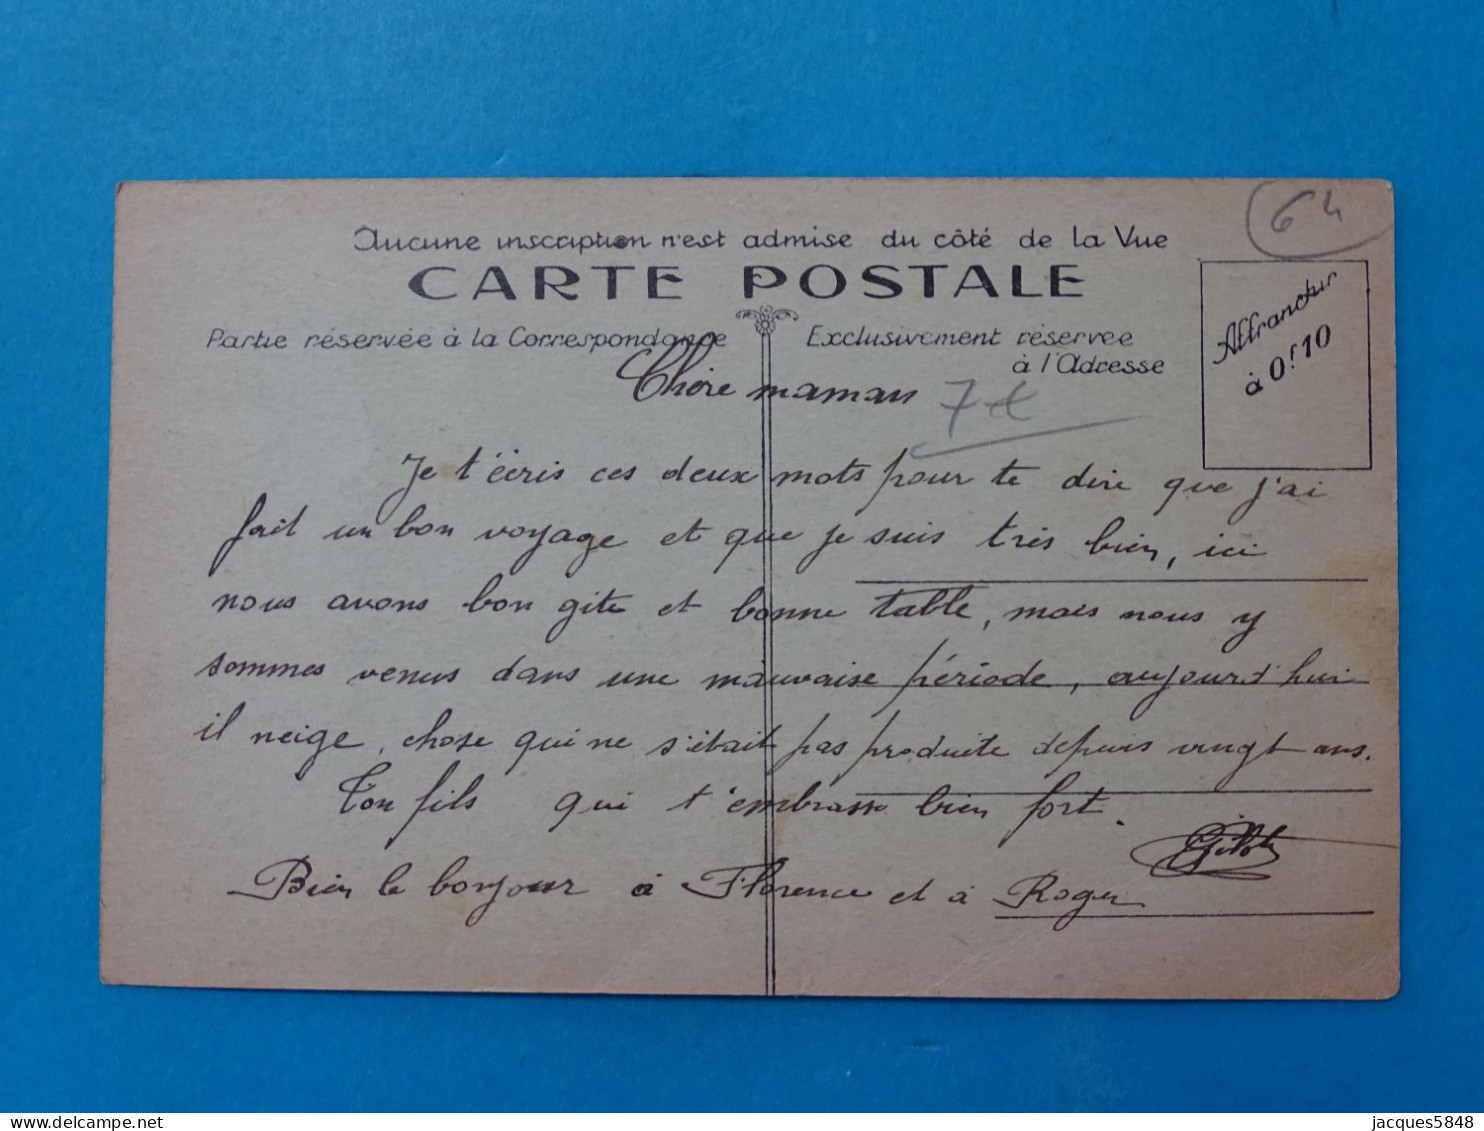 64
Aucune inscription n'est admise du côté de la Vue
CARTE POSTALE
Affranchir
à 0f10
Partie réservée à la Correspondance
Exclusivement réservée
à l'Adresse
Chère maman
7€
Je t'écris ces deux mots pour te dire que j'ai
fait un bon voyage et que je suis très bien, ici
nous avons bon gite et bonne table, mais nous y
sommes venus dans une mauvaise période, aujourd'hui
il neige, chose qui ne s'était pas produite depuis vingt ans.
Ton fils qui t'embrasse bien fort.
Bien le bonjour à Florence et à Roger
jacques5848